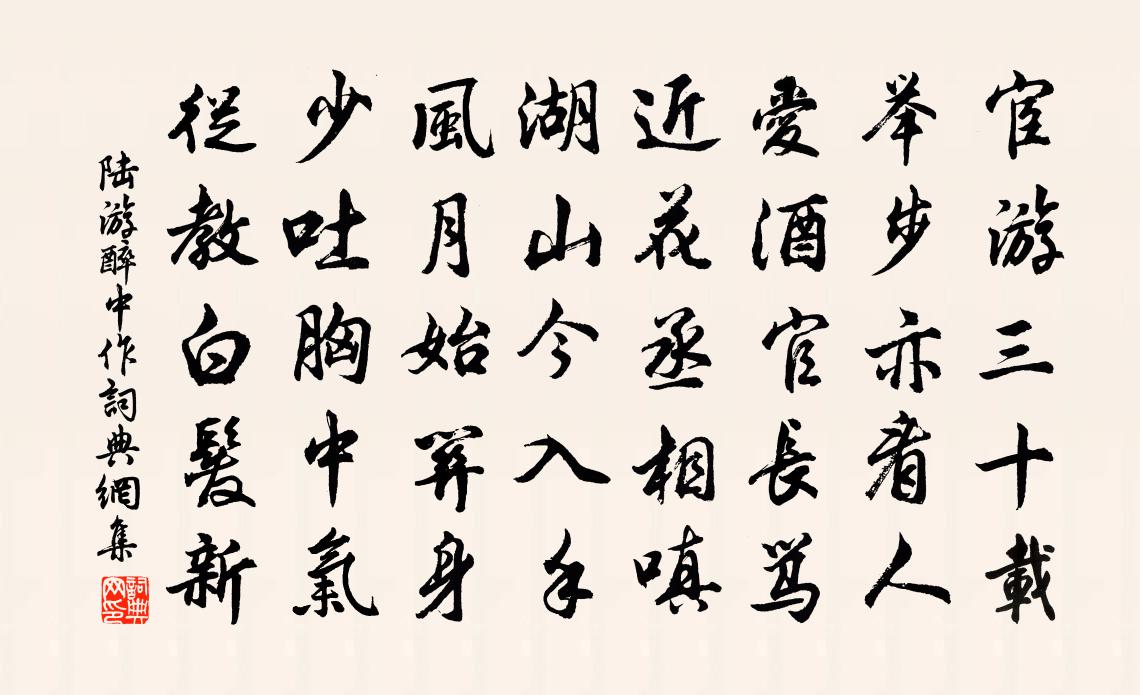 宦游三十載
举步亦看人
愛酒官長骂
近花丞相嗔
湖山今入手
風月始关身
少吐胸中氣
從教白髮新
陆游醉中作詞典網集
詞典网印